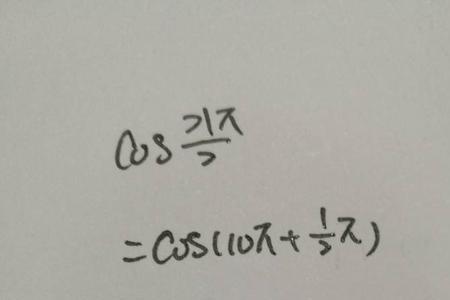 cos 21π/2
=cos(10π+1/2π)